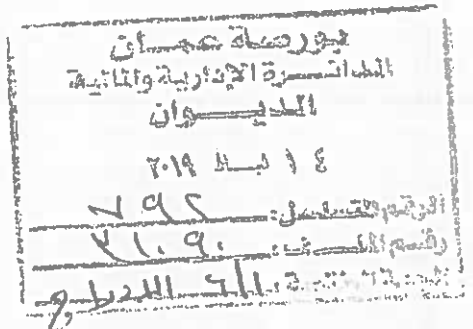 بورصة عمان
الدائرة الإدارية والمالية
الديوان
١٤ شباط ٢٠١٩
الرقم المتسلسل: ٧٩٢
رقم الملف: ٢١٠٩٠
الجهة المختصة: